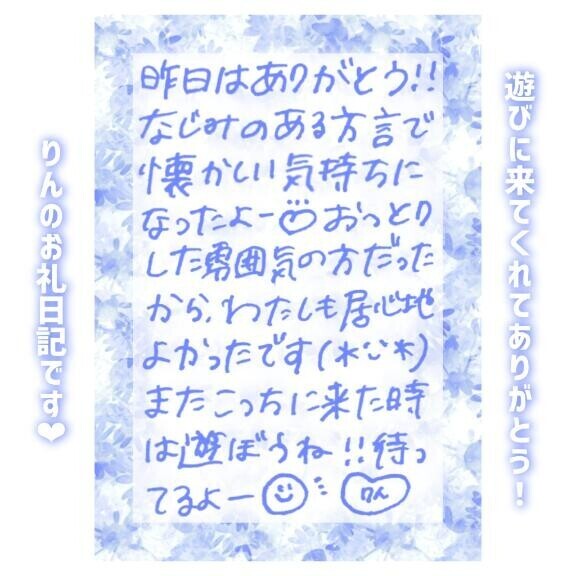 遊びに来てくれてありがとう！
昨日はありがとう!!
なじみのある方言で
懐かしい気持ちに
なったよー♡おっとり
した雰囲気の方だった
から、わたしも居心地
よかったです(*ˊᵕˋ*)
またこっちに来た時
は遊ぼうね!!待っ
てるよー☺ りん
りんのお礼日記です❤